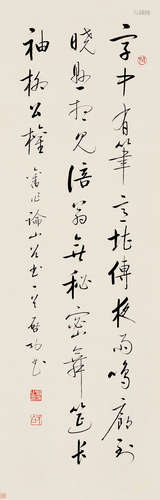 字中有筆意堪傳夜雨鳴廊到
曉懸想見涪翁無秘密舞筵長
袖柳公權
舊作論山谷書一首 啟功書